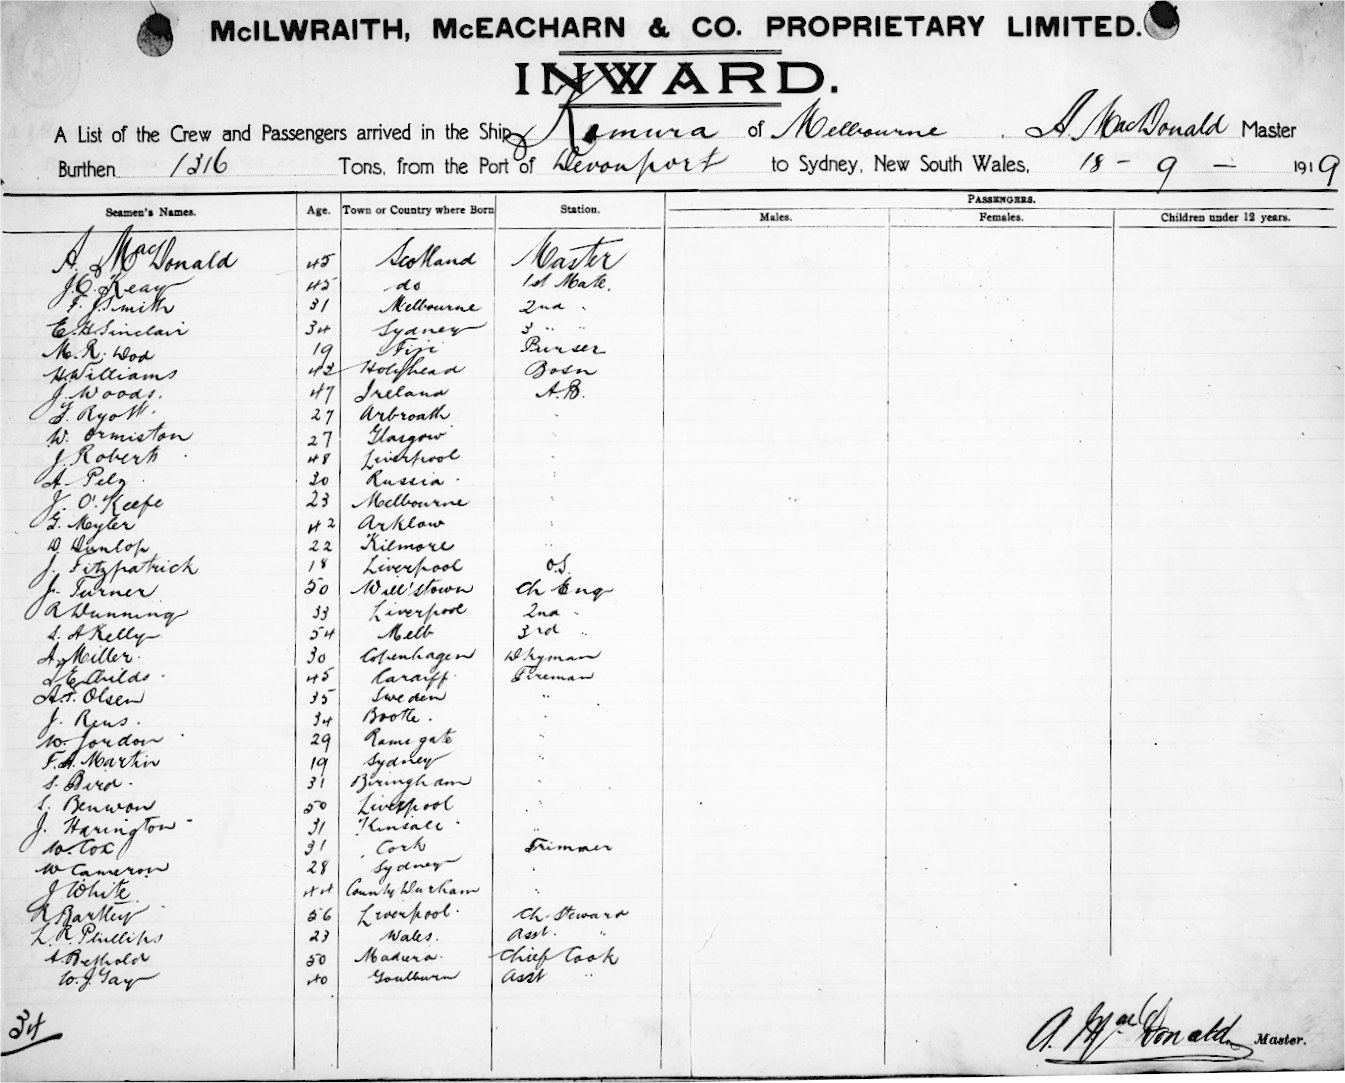 McILWRAITH, McEACHARN & CO. PROPRIETARY LIMITED.
INWARD.
A List of the Crew and Passengers arrived in the Ship Komura of Melbourne. A MacDonald Master
Burthen 1316 Tons, from the Port of Devonport to Sydney, New South Wales, 18 - 9 - 1919
PASSENGERS.
Seamen's Names. Age. Town or Country where Born Station. Males. Females. Children under 12 years.
A. MacDonald 45 Scotland Master
J.C. Keay 45 do 1st Mate.
F. J. Smith 31 Melbourne 2nd "
E.H. Sinclair 34 Sydney 3 " "
M. R. Wod 19 Fiji Purser
H. Williams 42 Holyhead Bosn
J. Woods. 47 Ireland A.B.
G. Ryott. 27 Arbroath "
W. Ormiston 27 Glasgow "
J. Roberts 48 Liverpool "
A. Pelz. 30 Russia. "
J. O'Keefe 23 Melbourne "
G. Myler 42 Arklow "
D. Dunlop 22 Kilmore "
J. Fitzpatrick 18 Liverpool O.S.
J. Turner 50 Will'stown Ch Eng
R Dunning 33 Liverpool 2nd "
S. A Kelly 54 Melb 3rd "
A. Miller. 30 Copenhagen Dkyman
E. Childs. 45 Cardiff. Fireman
A.F. Olsen 35 Sweden "
J. Rens. 34 Bootle. "
W. Jordon 29 Ramsgate "
F.A. Martin 19 Sydney "
S. Bird. 31 Biringham "
S. Benwon 50 Liverpool "
J. Harington 31 Kinsale. "
W. Cox 31 Cork Trimmer
W Cameron 28 Sydney "
J White 44 County Durham "
R Bartley 56 Liverpool. Ch. Steward
L. R. Phillips 23 Wales. Asst. "
A Bethold 50 Madura. Chief Cook
W. J. Gay 40 Goulburn Asst "
34
A. MacDonald Master.